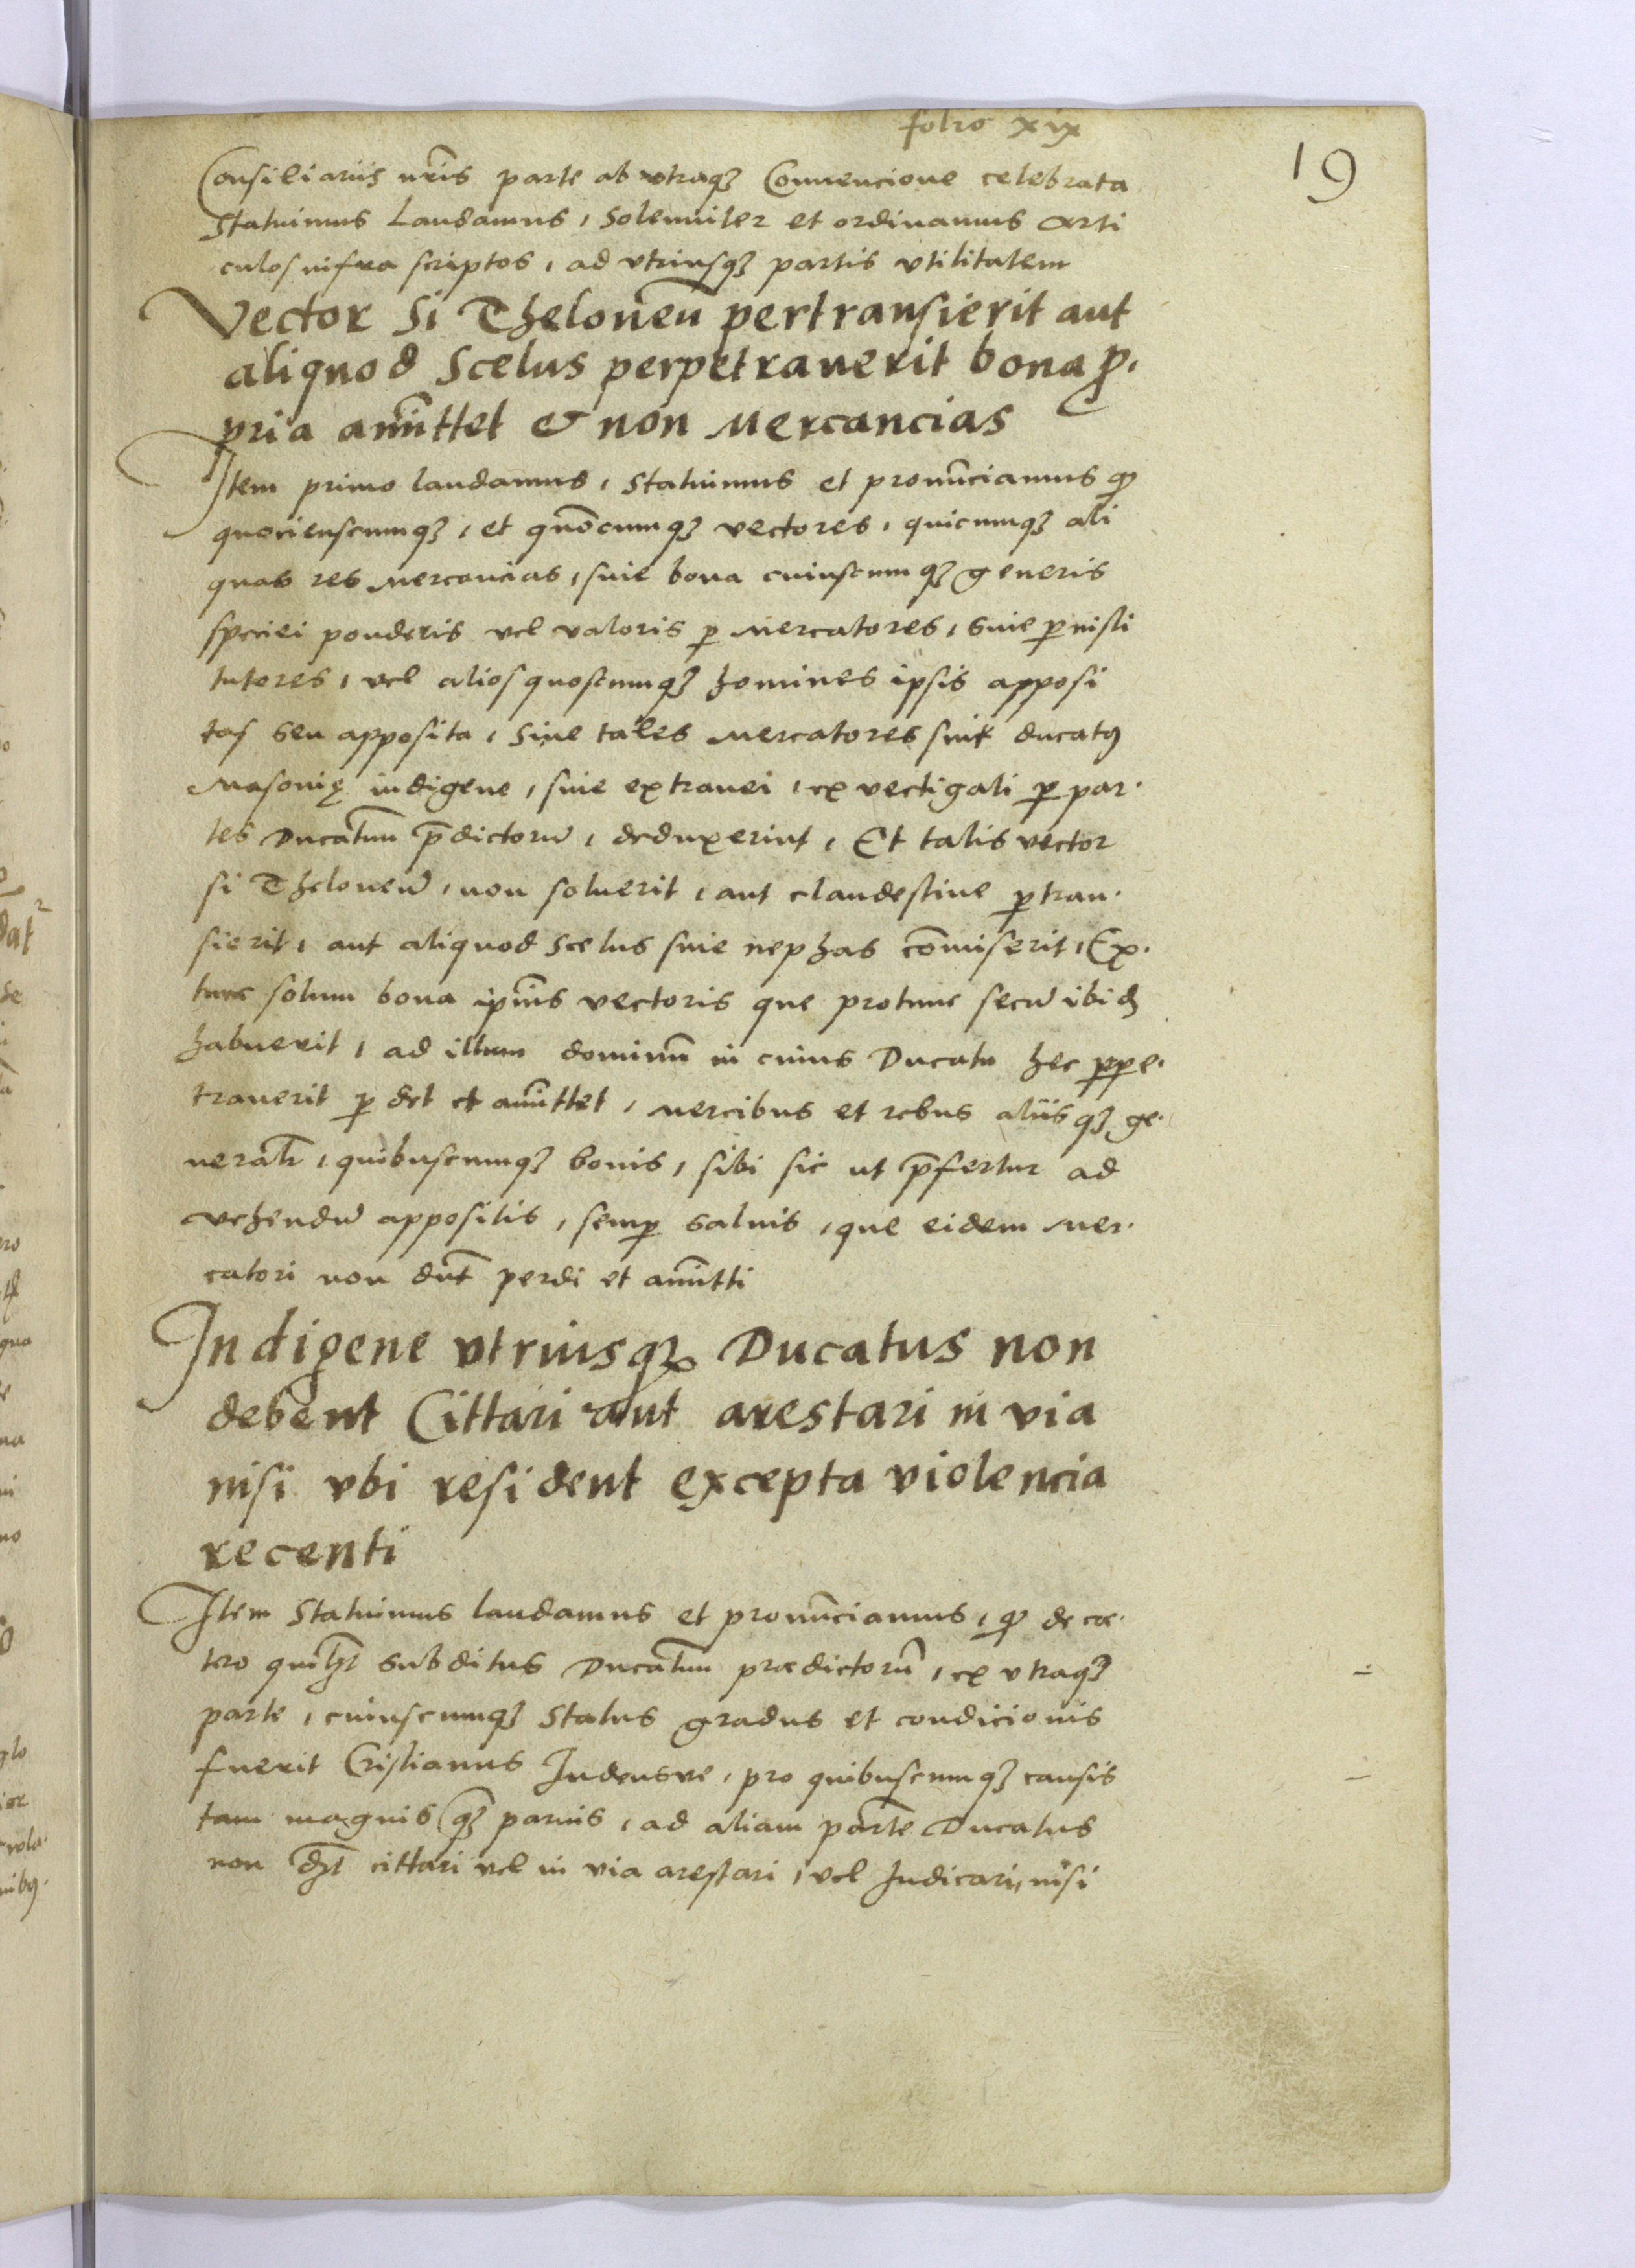 folio xix
19
Consiliariis nr̃is parte ab vtraqꝫ Convencione celebrata
Statuimus Laudamus, Solemniter et ordinamus Arti
culos infra scriptos, ad vtriusqꝫ partis vtilitatem
Vector Si Theloneũ pertransierit aut
aliquod Scelus perpetraverit bona ꝓ.
pria amittet & non Mercancias
Item primo laudamus, Statuimus et pronũnciamus ꝙ
quociensc​umqꝫ, et quõcumqꝫ vectores, quicumqꝫ ali
quas res Mercancias, sive bona cuiuscumqꝫ generis
speciei ponderis vel valoris ꝑ Mercatores, Sive ꝑ insti
tutores, vel alios quoscumqꝫ homines ipsis apposi
tas seu apposita, Sive tales Mercatores sint ducatꝰ
Masovię indigene, sive extranei, ex vectigali ꝑ par.
tes Ducatuũ p̄dictorũ, deduxerint, Et talis vector
si Theloneũ, non solverit, aut clandestine ꝑtran.
sierit, aut aliquod Scelus sive nephas cõmiserit, Ex.
tunc solum bona ip̃ius vectoris que protunc secũ ibidẽ
habuerit, ad illum dominũ in cuius Ducatu hec ꝑpe.
traverit ꝑdet et amittet, Mercibus et rebus aliisqꝫ ge.
neralr̃, quibuscumqꝫ bonis, sibi sic ut p̄fertur ad
vehendũ appositis, semꝑ salvis, que eidem Mer.
catori non dñt perdi et amitti
Indigene vtriusqꝫ Ducatus non
debent Cittari aut arestari in via
nisi vbi resident excepta violencia
recenti
Item Statuimus laudamus et pronũnciamus, ꝙ de cæ.
tero quilꝫt Subditus Ducatuũ prædictorũ, ex vtraqꝫ
parte, cuiuscumqꝫ Status gradus et condicionis
fuerit Cristianus Iudeusve, pro quibuscumqꝫ causis
tam magnis qꝫ parvis, ad aliam partẽ Ducatus
non dꝫt cittari vel in via arestari, vel Iudicari, nisi